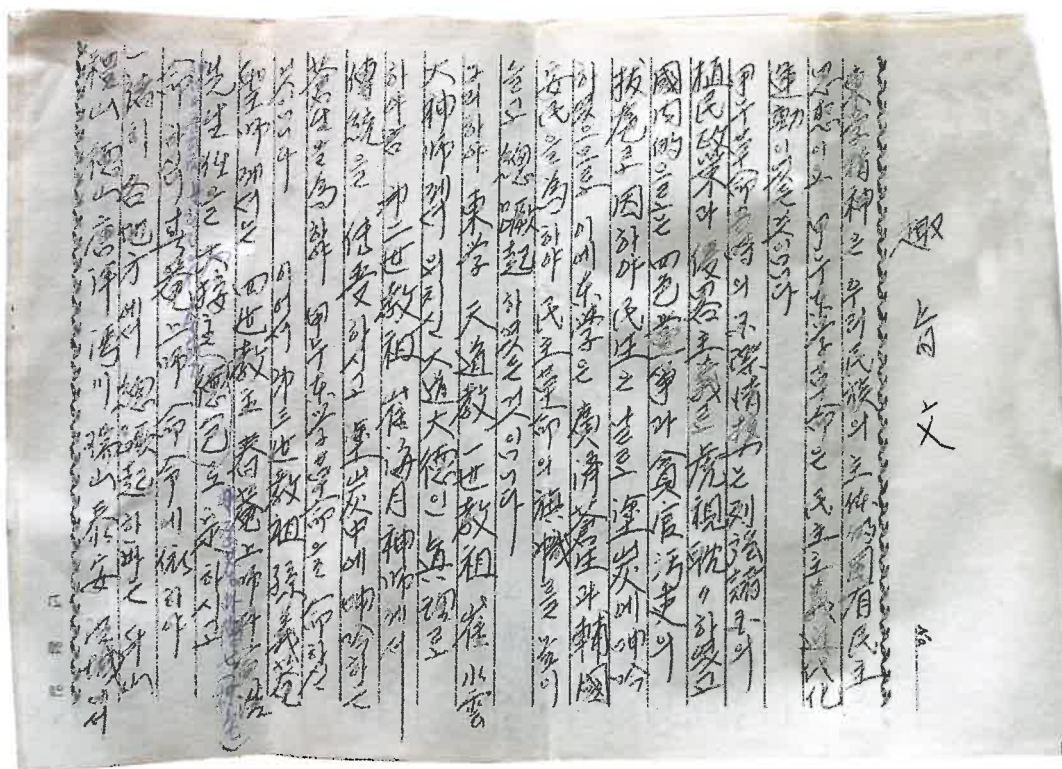 趣旨文
東學精神은 우리民族의 主体的固有民主
思想이고 甲午东学革命은 民主主義近代化
運動이었든 것입니다
甲午革命 当時의 国際情勢는 列强諸国의
植民政策과 侵畧主義로 虎視眈々하였고
國内的으로는 四色党爭과 貪官汚吏의
拔扈로 因하야 民生는 날로 塗炭에 呻吟
하였으므로 이에 东学은 廣濟蒼生과 輔國
安民을 為하야 民主革命의 旗幟를 높이
들고 總蹶起하였든 것입니다
하야 東学 天道教 一世教祖 崔水雲
大神師께서 大道大德의 眞理로
하야금 第二世教祖 崔海月神師께서
傳統을 傳受하시고 塗炭中에 呻吟하는
蒼生을 為하야 甲午东学革命을 命하신
것입니다
이어서 第三世教祖 孫義菴
聖師께서는 四世教主 春菴上師
先生 大接主 德包로 定하시고
春菴上師 命에 依하야
一濟히 各地方에서 總蹶起한바 礼山
德山 唐津 沔川 瑞山 泰安 에서